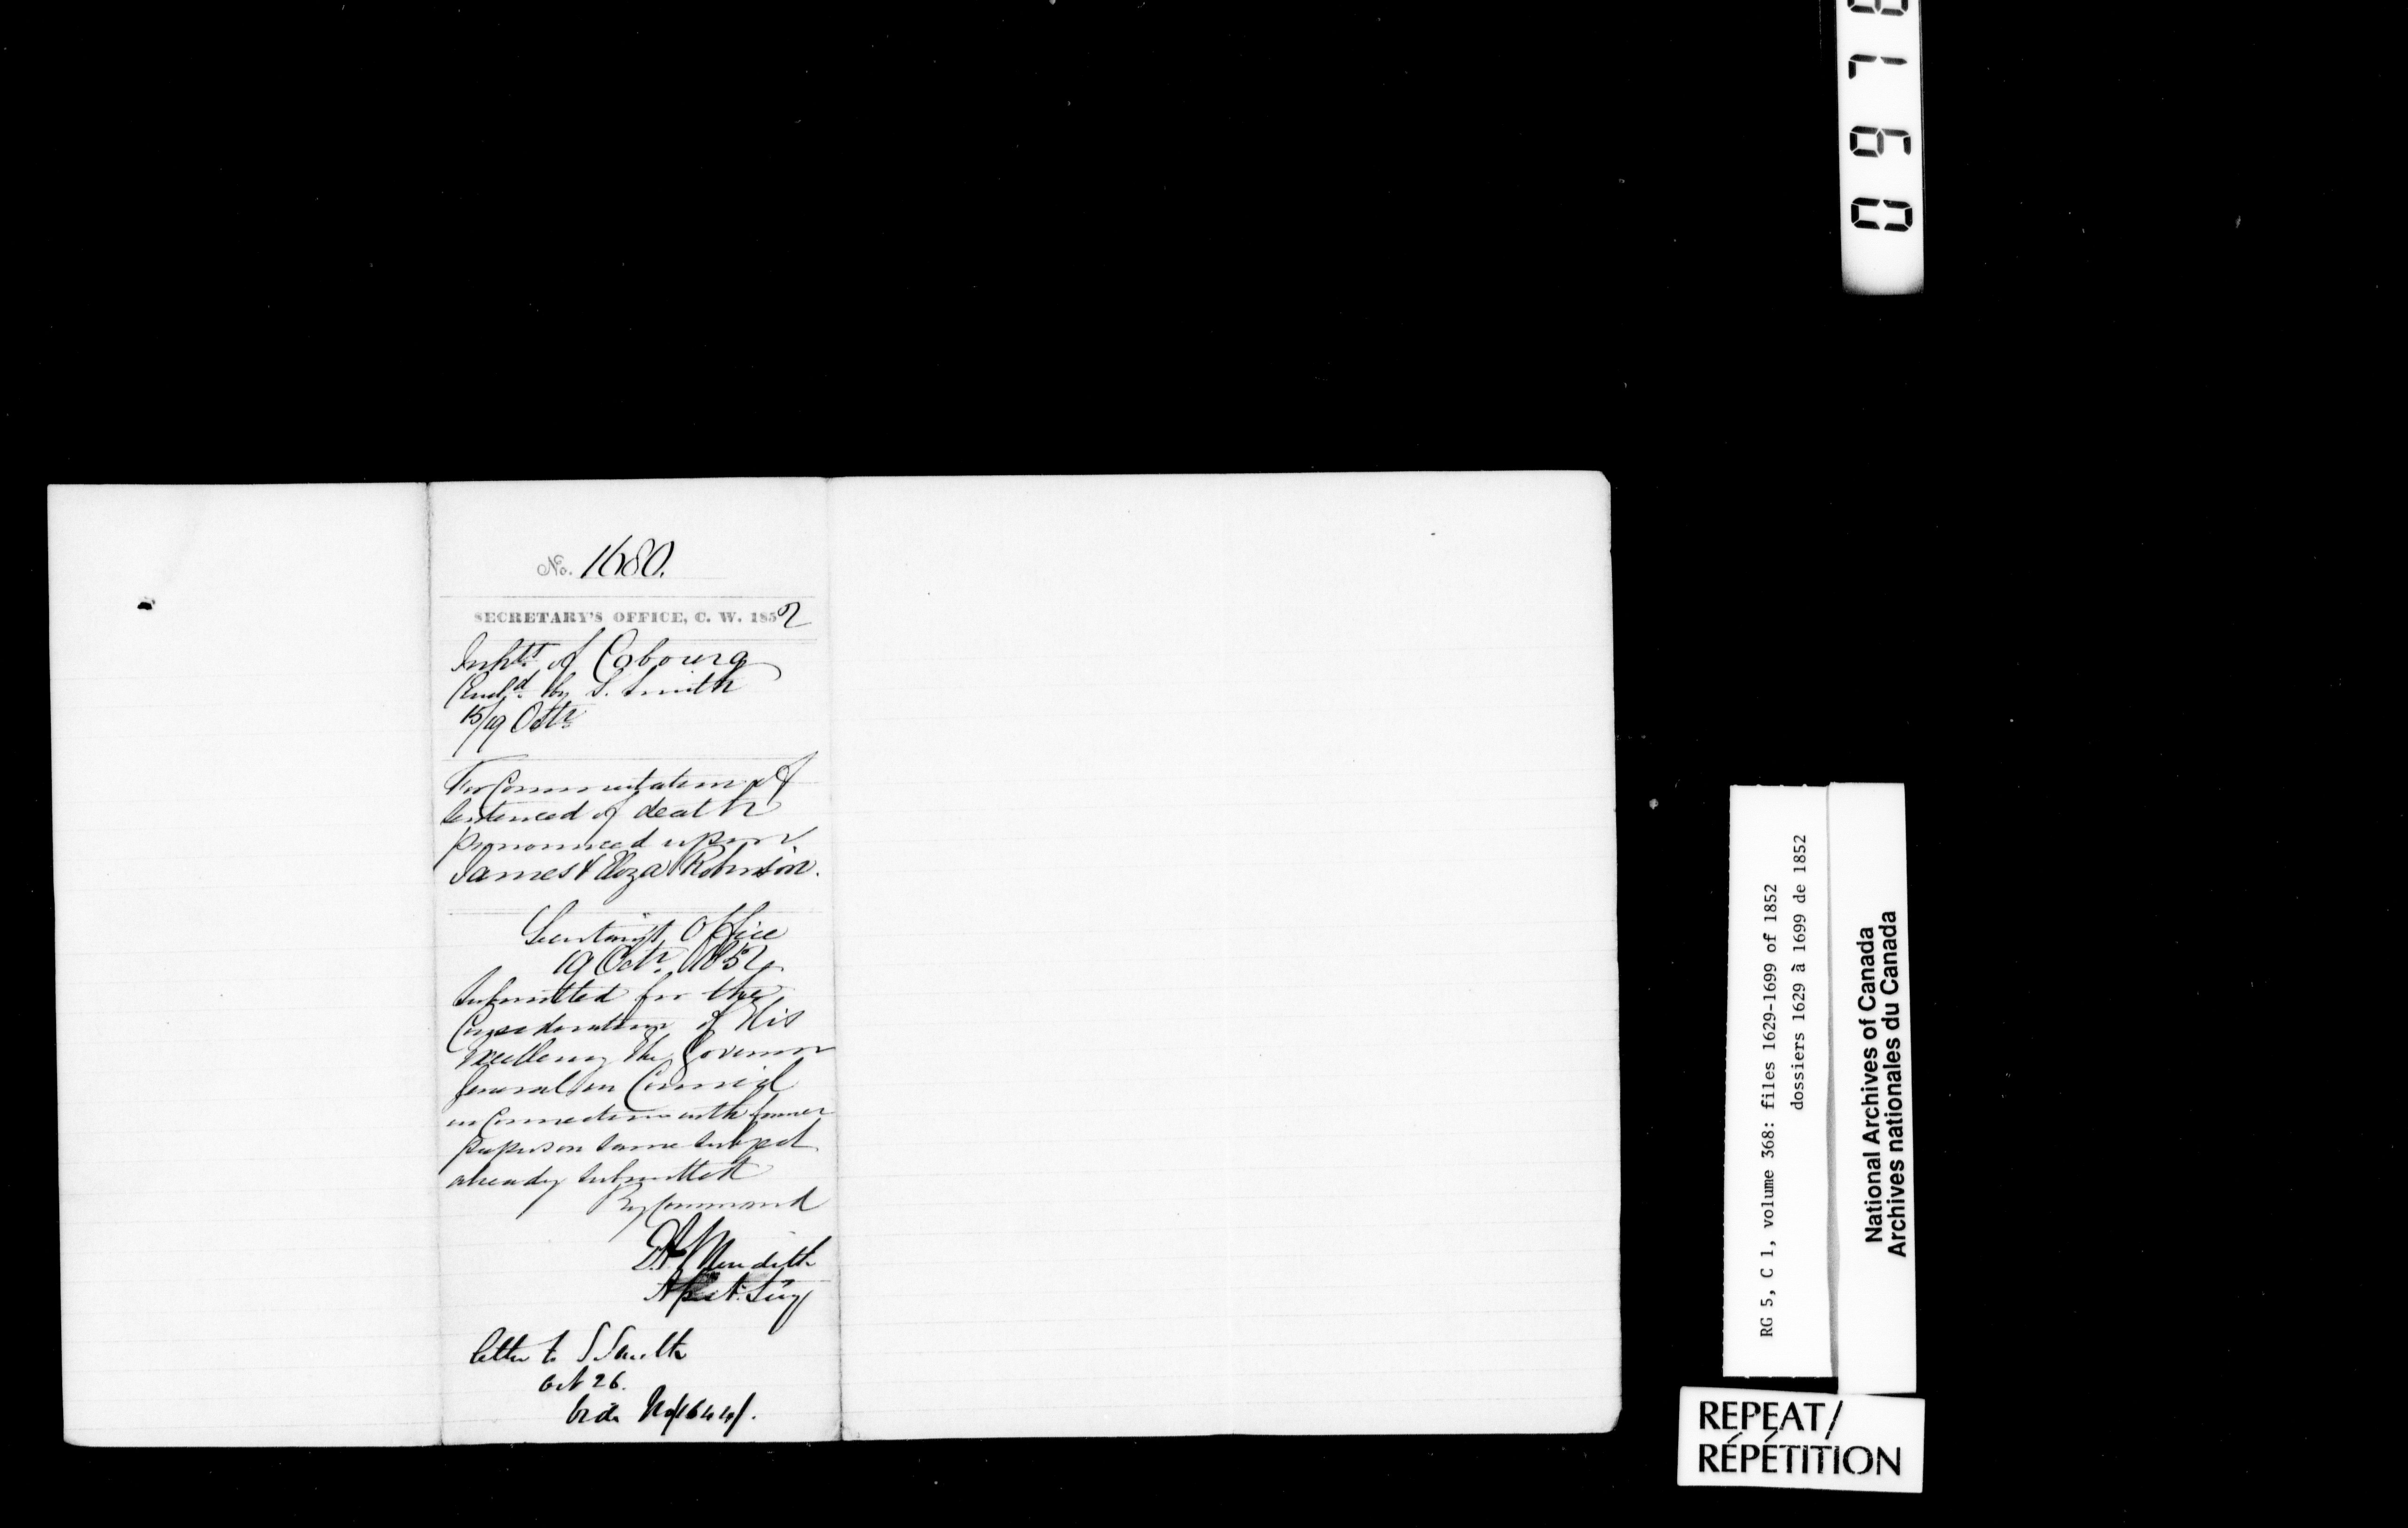 No. 1680.
SECRETARY'S OFFICE, C. W. 1852
Inhtts of Cobourg
(Encl.d by S. Smith
15/19 Octr
For Commutation of
Sentenced of death
pronounced upon
James & Eliza Robinson.
Secretary's Office
19 Octr. 1852
Submitted for the
Consideration of His
Excellency the Governor
General in Council
in Connection with former
papers on same subject
already submitted
By Command
E.A. Meredith
Asst. Secy
Letter to S Smith
Oct 26.
Vide No/1644/.
0 9 7 8
RG 5, C 1, volume 368: files 1629-1699 of 1852
dossiers 1629 à 1699 de 1852
National Archives of Canada
Archives nationales du Canada
REPEAT/
RÉPÉTITION